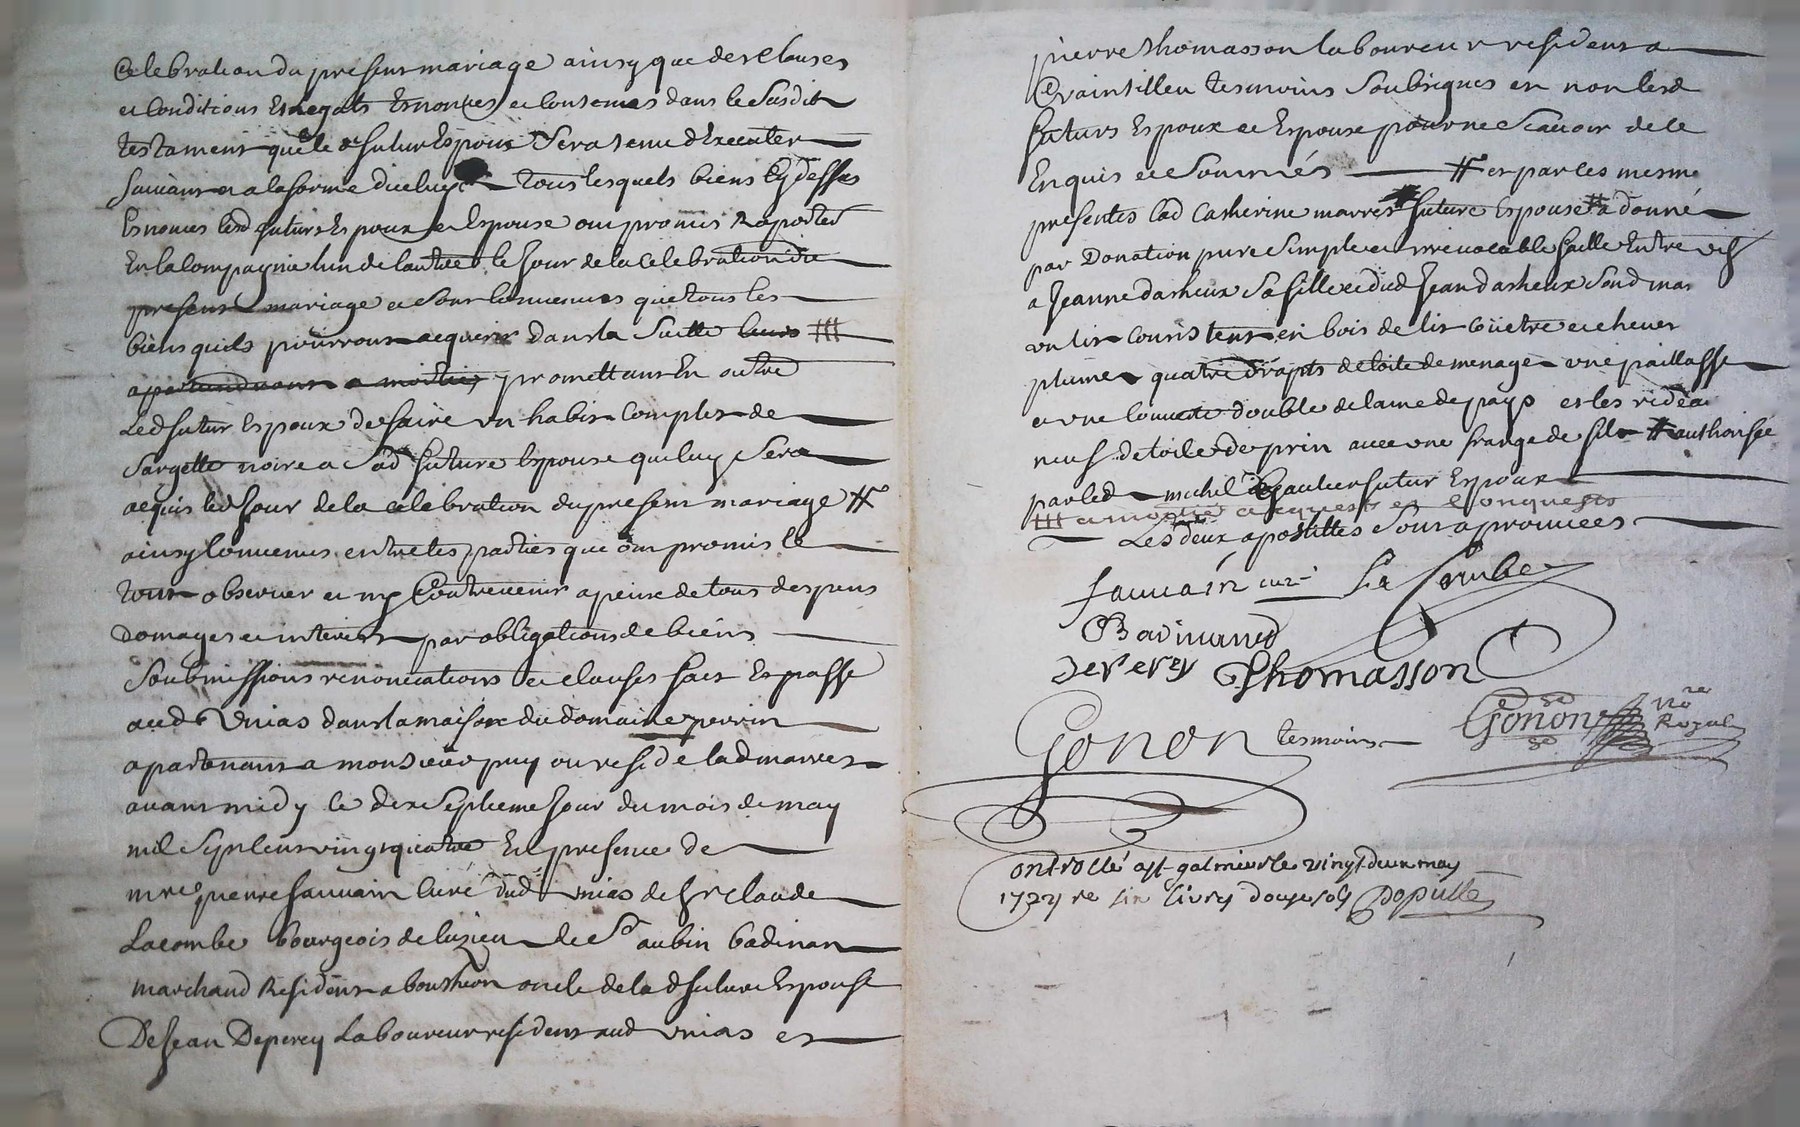 Celebration du present mariage ainsy que des clauses
et Conditions Et legats Esnonces et Contenus dans le Susdit
testament que le d futur Espoux Sera tenu d'Executer
Suivant et a la forme diceluy tous lesquels biens Cy dessus
Esnonces lesd futurs Espoux et Espouse ont promis Raporter
En la Compagnie lun de lautre le Jour de la Celebration du
present mariage et Sont Convenus que tous les
biens quils pourront acquerir dans la Suitte leurs
apartiendront a moitie promettant En outre
Led futur Espoux de faire un habit Complet de
Sargette noire a Sad future Espouse qui luy Sera
acquis led Jour de la celebration du present mariage #
ainsy Convenus entre les parties que ont promis le
tout observer et ny Contrevenir a peine de tous despens
Domages et interets par obligations de biens
Soubmissions renonciations et clauses fait Et passé
aud Unias dans la maison du domaine perrin
apartenant a monsieur puy ou reside lad marret
avant midy le dix Septieme Jour du mois de may
mil Sept Cent vingt quatre En presence de
mre pierre fauvain Curé dud Unias de Sr claude
Lacombe bourgeois de luzieu de St aubin badinan
marchand Resident a bouthéon oncle de lad future Espouse
De Jean Deperey Laboureur resident aud Unias et
pierre thomasson laboureur resident a
Craintilleu tesmoins Soubsignes et non lesd
futurs Espoux et Espouse pour ne Scavoir de ce
Enquis et Sommés # et par les mesme
presentes lad Catherine marret future Espouse # a donné
par Donation pure Simple et irrevocable faitte Entre vifs
a Jeanne dasheux Sa fille et dud Jean dasheux Son d mary
un lit Consistent en bois de lit Coüetre et chevet
plume quatre draps de toile de menage une paillasse
et une Couverte double de laine de pays et les rideau
neuf de toile de prin avec une frange de fil # authorisée
par led michel Gautier futur Espoux
a moitié acquests et Conquests
Les deux apostilles Sont aprouvées
fauvain curé La Combe
Badinand
deperey Thomasson
Gonon tesmoins Gonon nore Royal
Controllé a St galmier le vingt deux may
1724 re Six livres douze sols Populle